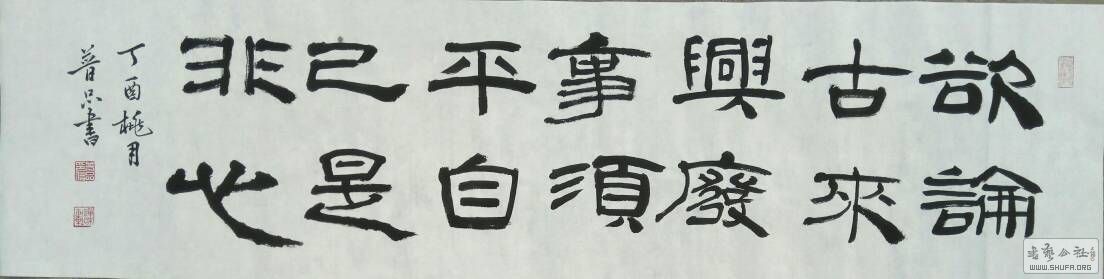 欲論
古來
興廢
事須
平自
己是
非心
丁酉桃月
普只書
WWW.SHUFA.ORG